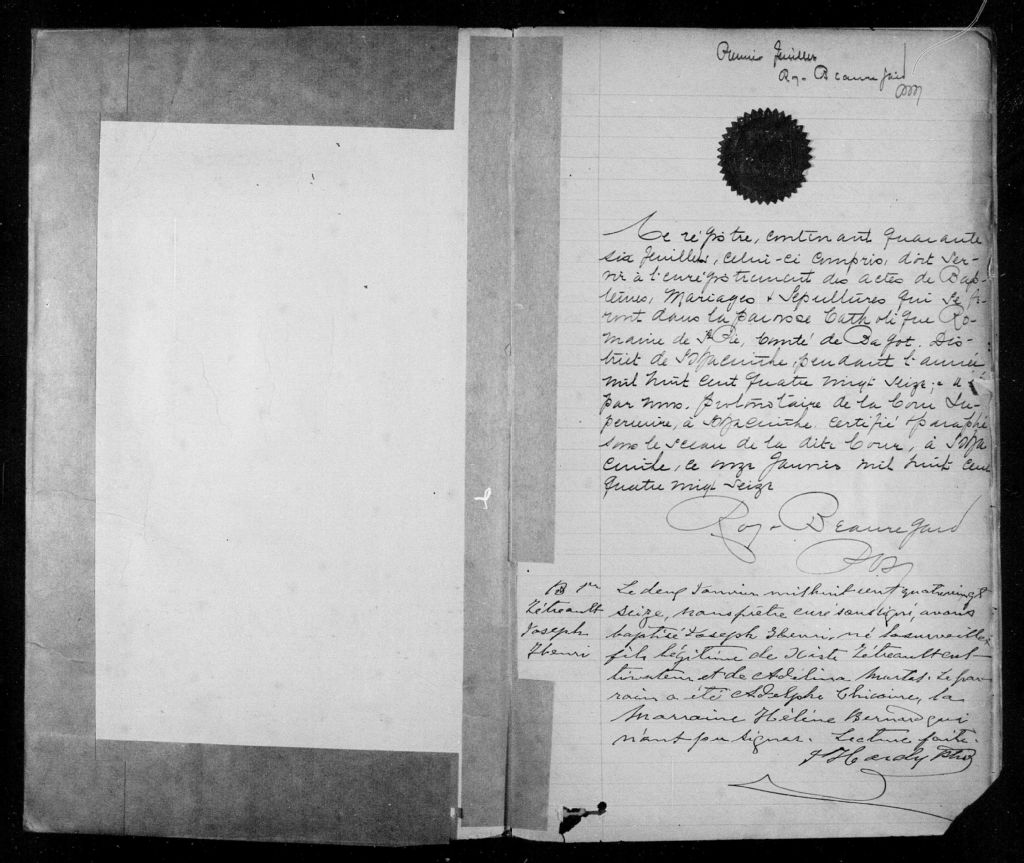 Premier feuillet
Roy-Beauregard
Ce régistre, contenant quarante
six feuillets, celui-ci compris, doit ser-
vir à l'enrégistrement des actes de Bap-
têmes, Mariages & Sépultures qui se fe-
ront dans la paroisse Catholique Ro-
maine de St Pie, Comté de Bagot. Dis-
trict de St Hyacinthe, pendant l'année
mil huit cent quatre vingt seize; a été
par nous. protonotaire de la Cour Su-
perieure, à St Hyacinthe certifié & paraphé
sous le sceau de la dite Cour, à St Hya
cinthe, ce onze Janvier mil huit cent
quatre vingt seize
Roy-Beauregard
B 1er
Tétreault
Joseph
Henri
Le deux Janvier mil huit cent quatrevingt
seize, nous prêtre curé soussigné, avons
baptisé Joseph Henri, né la surveille
fils légitime de Tétreault cul-
tivateur et de Adelina Le par-
rain a été Adelphe Chicoine, la
Marraine Hélène Bernard qui
n'ont pu signer. Lecture faite.
Hardy Ptre